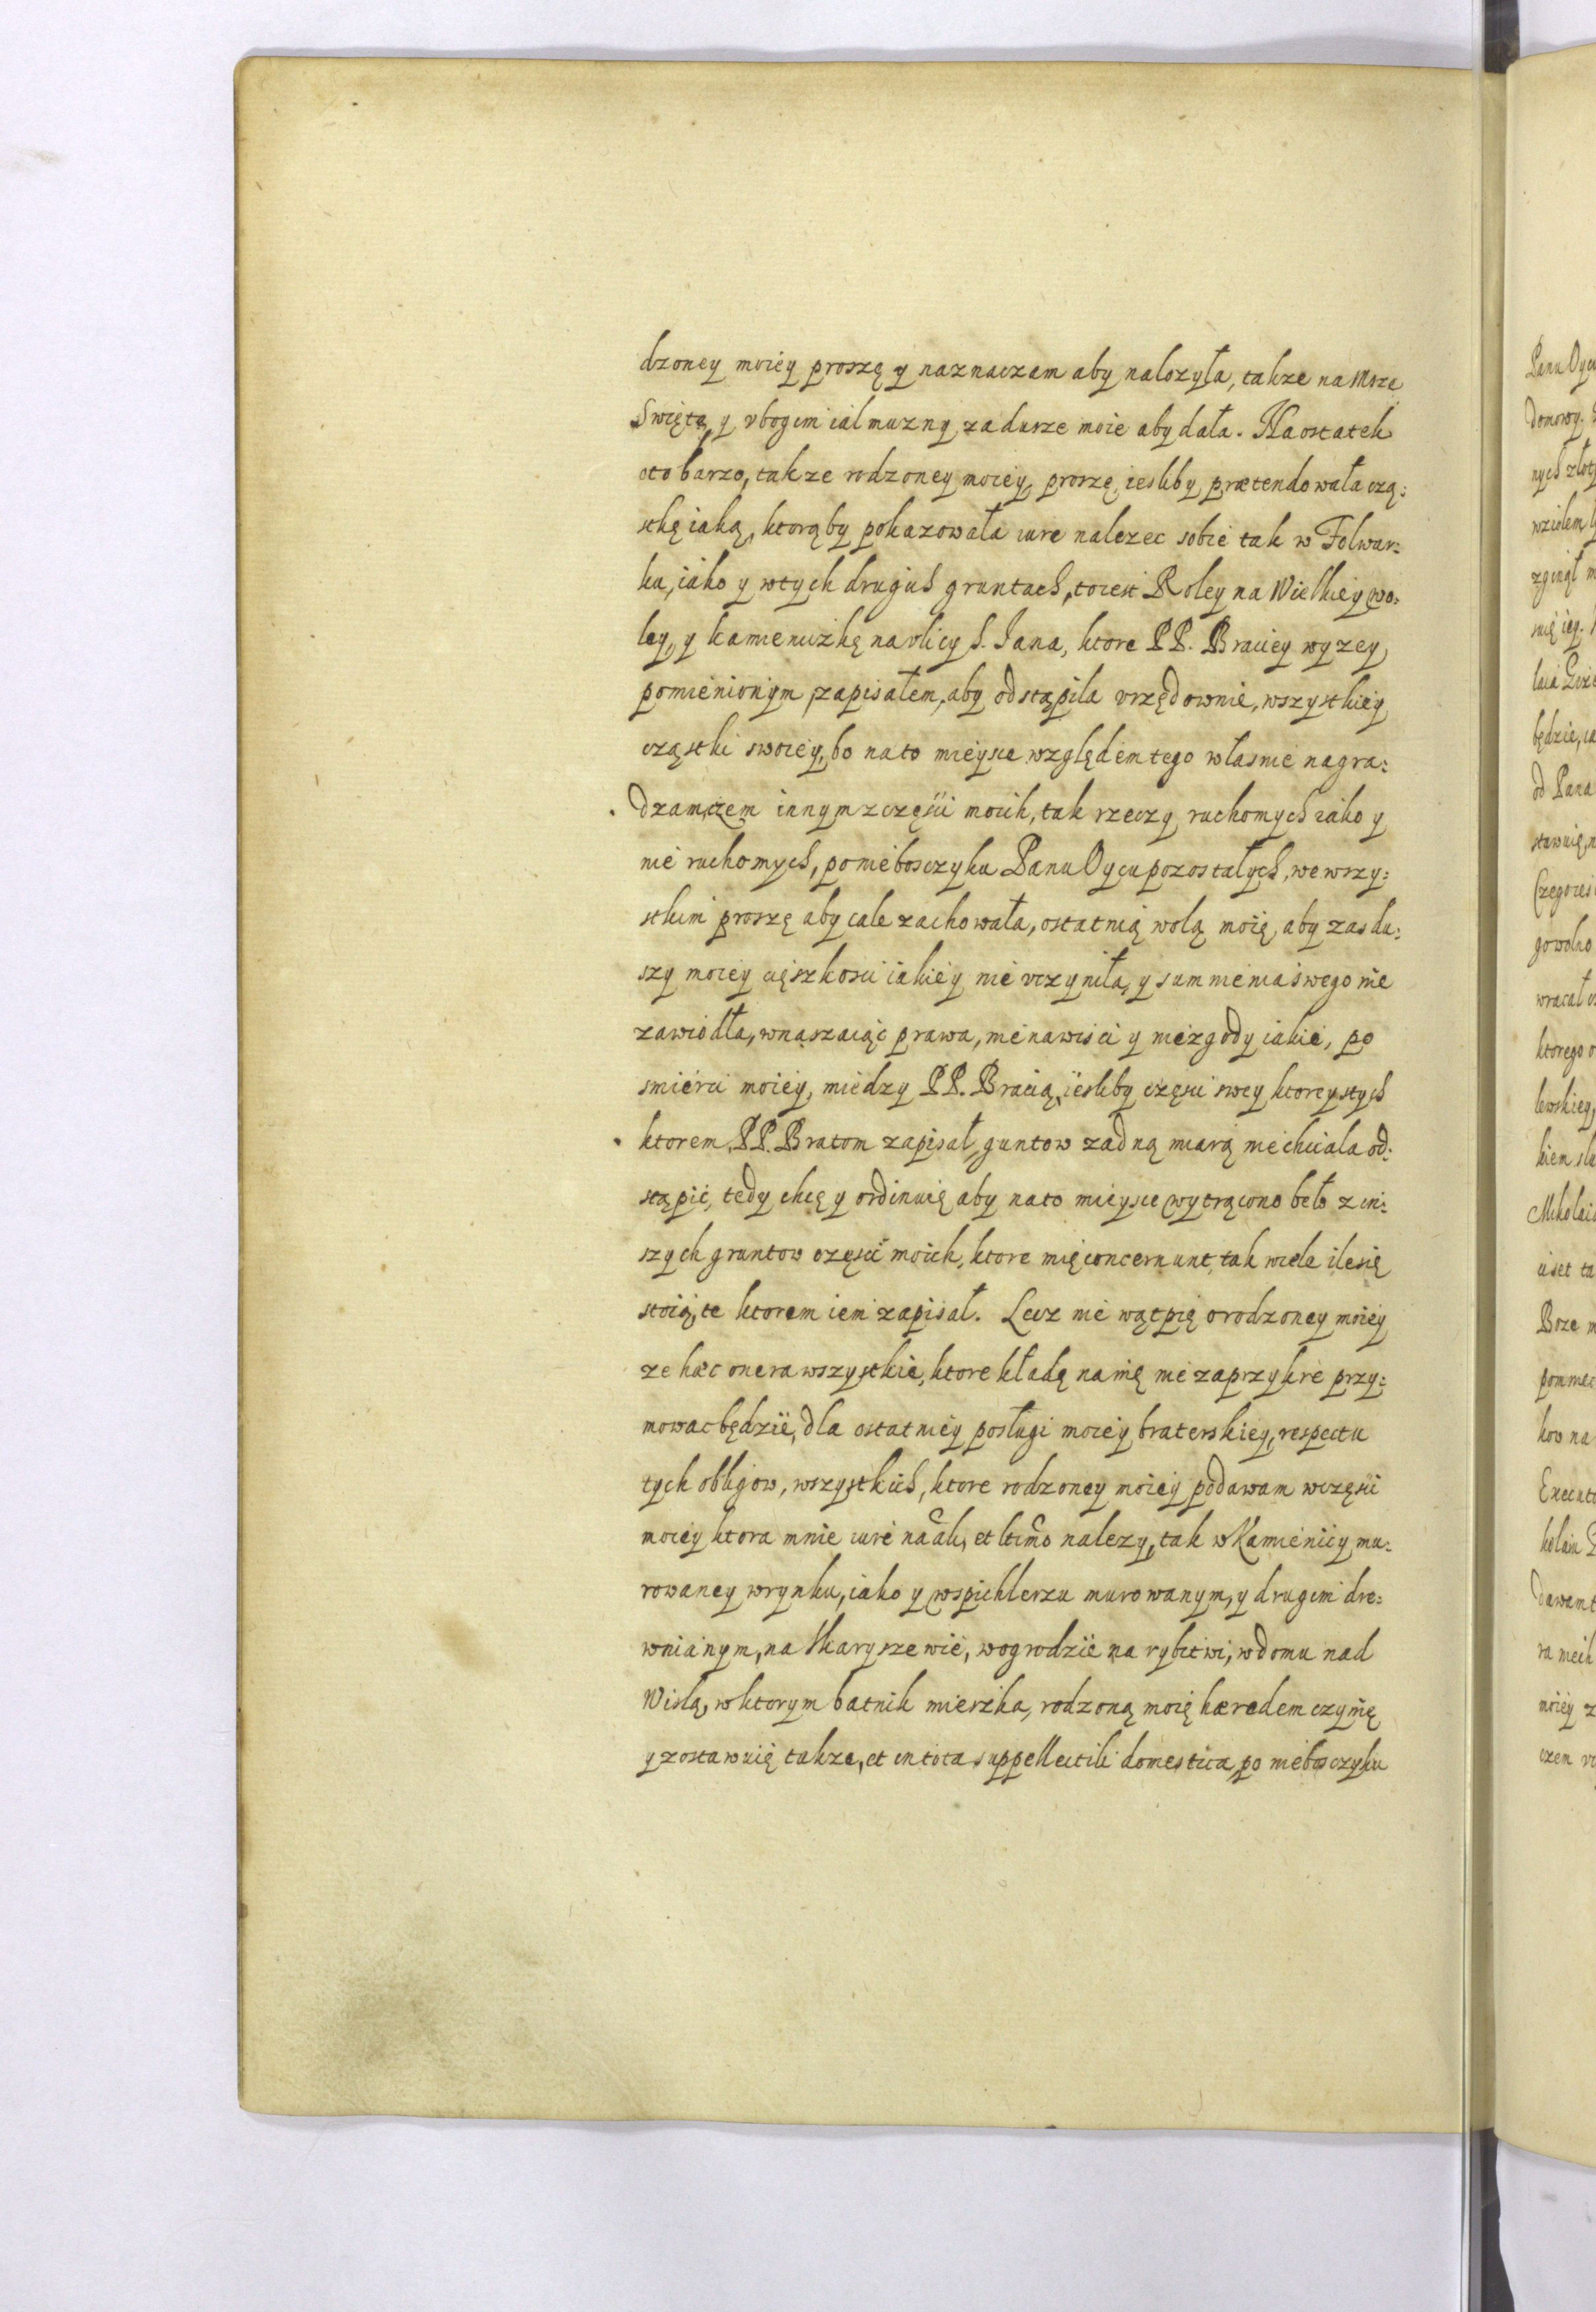 dzoney moiey proszę y naznaczam aby nalozyła, takze na Msze
Swiętą y vbogim ialmuzny za dusze moie aby dała. Na ostatek
oto barzo, takze rodzoney moiey, proszę, iesliby prætendowała czą:
stkę iaką, ktorąby pokazowała iure nalezec sobie tak w Folwar:
ku, iako y wtych drugich gruntach, toiest Roley na Wielkiey wo:
ley, y kamieniczkę na vlicy S. Jana, ktore PP. Braciey wyzey
pomienionym zapisałem, aby odstąpila vrzędownie, wszystkiey
cząstki swoiey, bo na to mieysce względem tego własnie nagra:
dzam, czem innym z częsci moich, tak rzeczy ruchomych iako y
nie ruchomych, po nieboszczyku Panu Oycu pozostałych, we wszy:
stkim proszę aby cale zachowała, ostatnią wolą moię, aby zas du:
szy moiey cięszkosci iakiey nie vczyniła, y summienia swego nie
zawiodła, wnaszaiąc prawa, nienawisci y niezgody iakie, po
smierci moiey, miedzy PP. Bracią, iesliby częsci swey ktorey stych
ktorem PP. Bratom zapisał, guntow zadną miarą nie chciala od:
stąpic, tedy chcę y ordinuię aby na to mieysce wytrącono beło z in:
szych gruntow częsci moich, ktore mię concernunt, tak wiele ile się
stoią, te ktorem iem zapisał. Lecz nie wątpię o rodzoney moiey
ze hæc onera wszystkie, ktore kładę na nię nie zaprzykre przy:
mowac będzie, dla ostatniey posługi moiey braterskiey, respectu
tych obligow, wszystkich, ktore rodzoney moiey podawam w częsci
moiey ktora mnie iure nãali, et ltimo nalezy, tak w Kamienicy mu:
rowaney wrynku, iako y wspichlerzu murowanym, y drugim dre:
wnianym, na Skaryszewie, wogrodzie na rybitwi, w domu nad
Wisłą, wktorym batnik mieszka, rodzoną moię hæredem czynię
y zostawuię takze, et in tota suppellectili domestica po nieboszczyku
Panu Oycu
domowy.
nych złot
wziolem
zginął
będzie, ia
od Pana
gowolno
wracał
ktorego
lewskiey
kiem
Mikolai
Boze
kow na
Executo
kolaiu
dawam
ra niech
moiey z
czem